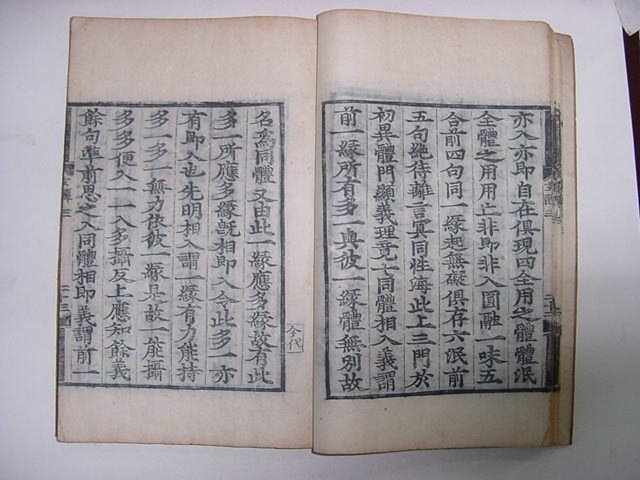 亦入亦即自在俱現四全用之體體泯
全體之用用亡非即非入圓融一味五
合前四句同一緣起無礙俱存六泯前
五句絶待離言冥同性海此上三門於
初異體門顯義理竟七同體相入義謂
前一緣所有多一與彼一緣體無別故
名爲同體又由此一緣應多緣故有此
多一所應多緣旣相即入令此多一亦
有即入也先明相入謂一緣有力能持
多一多一無力依彼一緣是故一能攝
多多便入一一入多攝反上應知餘義
餘句準前思之入同體相即義謂前一
仝代